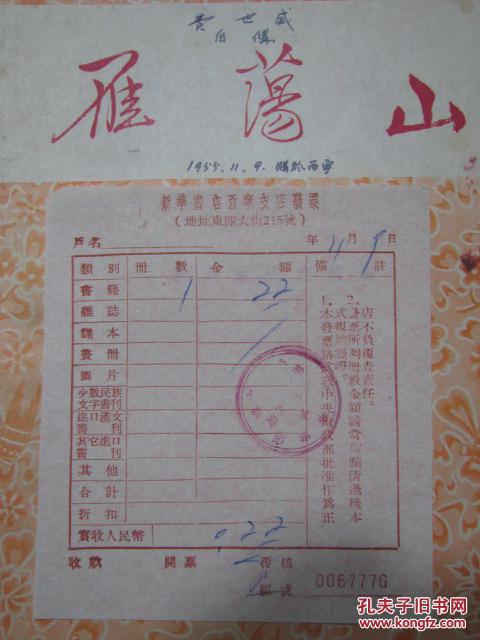 費世盛
自備
雁蕩山
1955.11.9.購於西寧
新華書店西寧支店發票
(地址東關大街215號)
戶名 年 11月9日
類別 冊數 金額 備計
書籍 1 22
雜誌
課本
畫冊
圖片
少數民族文字書刊
進口漢文書刊
其它進口書刊
其他
合計
折扣
實收人民幣 0.22
1.本發票格式報經中央財政部批准作為正式報銷憑證。
2.發票所列冊數金額請當面點清過後本店不負復查責任。
收款 開票 復核
編號 0067776
孔夫子旧书网
www.kongfz.com